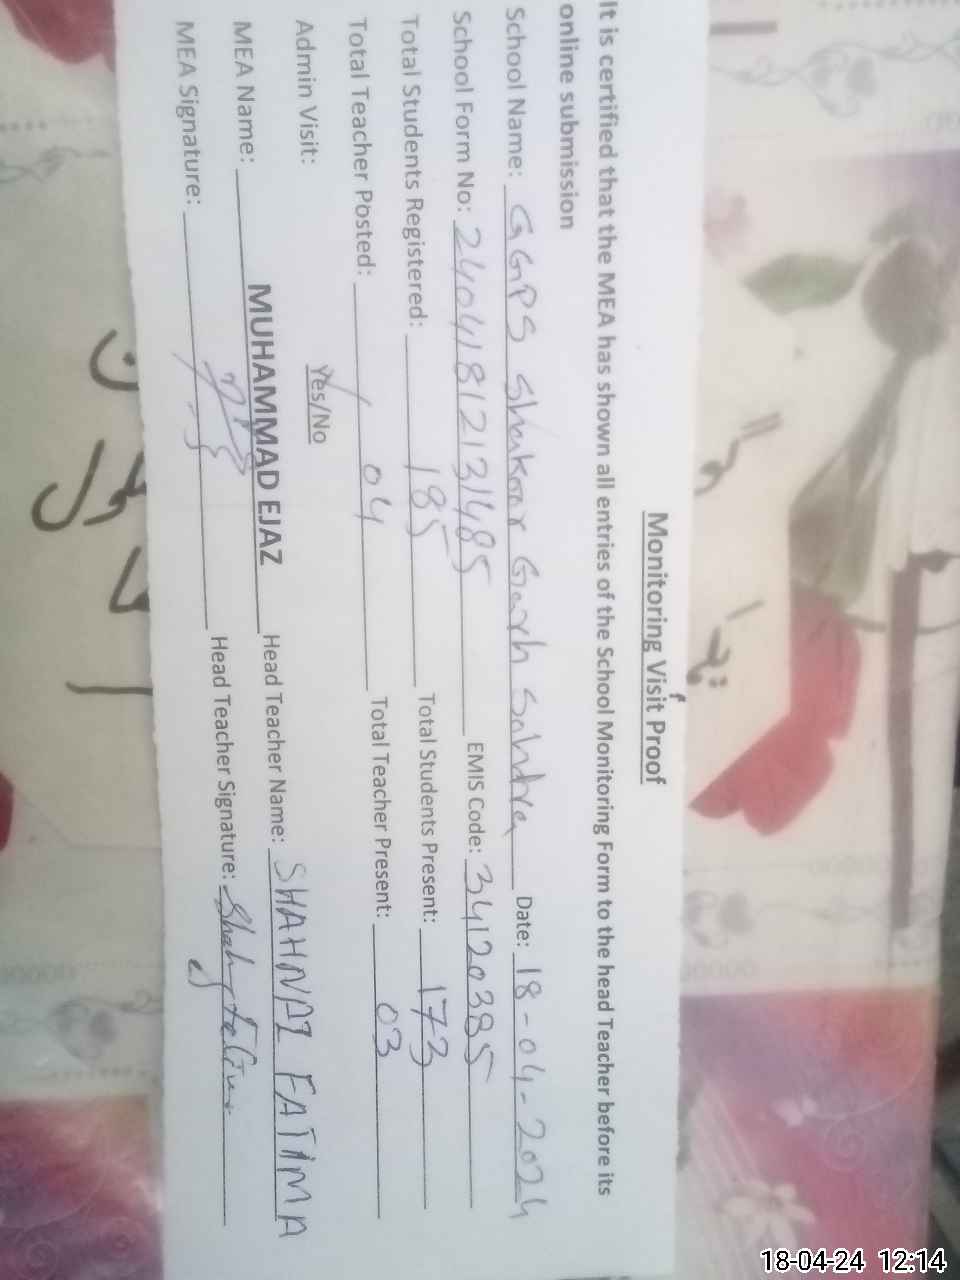 Monitoring Visit Proof
It is certified that the MEA has shown all entries of the School Monitoring Form to the head Teacher before its
online submission
School Name: GGPS Shakar Garh Sahdra Date: 18-04-2024
School Form No: 24041812131485 EMIS Code: 34120385
Total Students Registered: 185 Total Students Present: 173
Total Teacher Posted: 04 Total Teacher Present: 03
Admin Visit: Yes/No
MEA Name: MUHAMMAD EJAZ Head Teacher Name: SHAHNAZ FATIMA
MEA Signature: Head Teacher Signature:
18-04-24 12:14